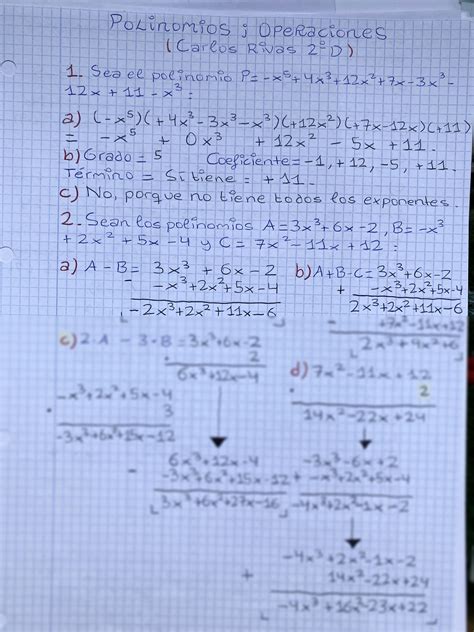 Polinomios ; Operaciones
(Carlos Rivas 2ºD)
1. Sea el polinomio P=-x⁵+4x³+12x²+7x-3x³-
12x+11-x³:
a) (-x⁵)(+4x³-3x³-x³)(+12x²)(+7x-12x)(+11)
= -x⁵ + 0x³ + 12x² - 5x + 11.
b) Grado = 5 Coeficiente = -1, +12, -5, +11.
Término = Sí tiene = +11.
c) No, porque no tiene todos los exponentes.
2. Sean los polinomios A=3x³+6x-2, B=-x³
+2x²+5x-4 y C=7x²-11x+12:
a) A-B= 3x³+6x-2
- -x³+2x²+5x-4
-2x³+2x²+11x-6
b) A+B-C=3x³+6x-2
+ -x³+2x²+5x-4
2x³+2x²+11x-6
- +7x²-11x+12
c) 2·A - 3·B = 3x³+6x-2
· 2
6x³+12x-4
-x³+2x²+5x-4
· 3
-3x³+6x²+15x-12
6x³+12x-4
- -3x³+6x²+15x-12
3x³+6x²+27x-16
d) 7x²-11x+12
· 2
14x²-22x+24
-3x³-6x+2
+ -x³+2x²+5x-4
-4x³+2x²-1x-2
-4x³+2x²-1x-2
+ 14x²-22x+24
-4x³+16x²-23x+22